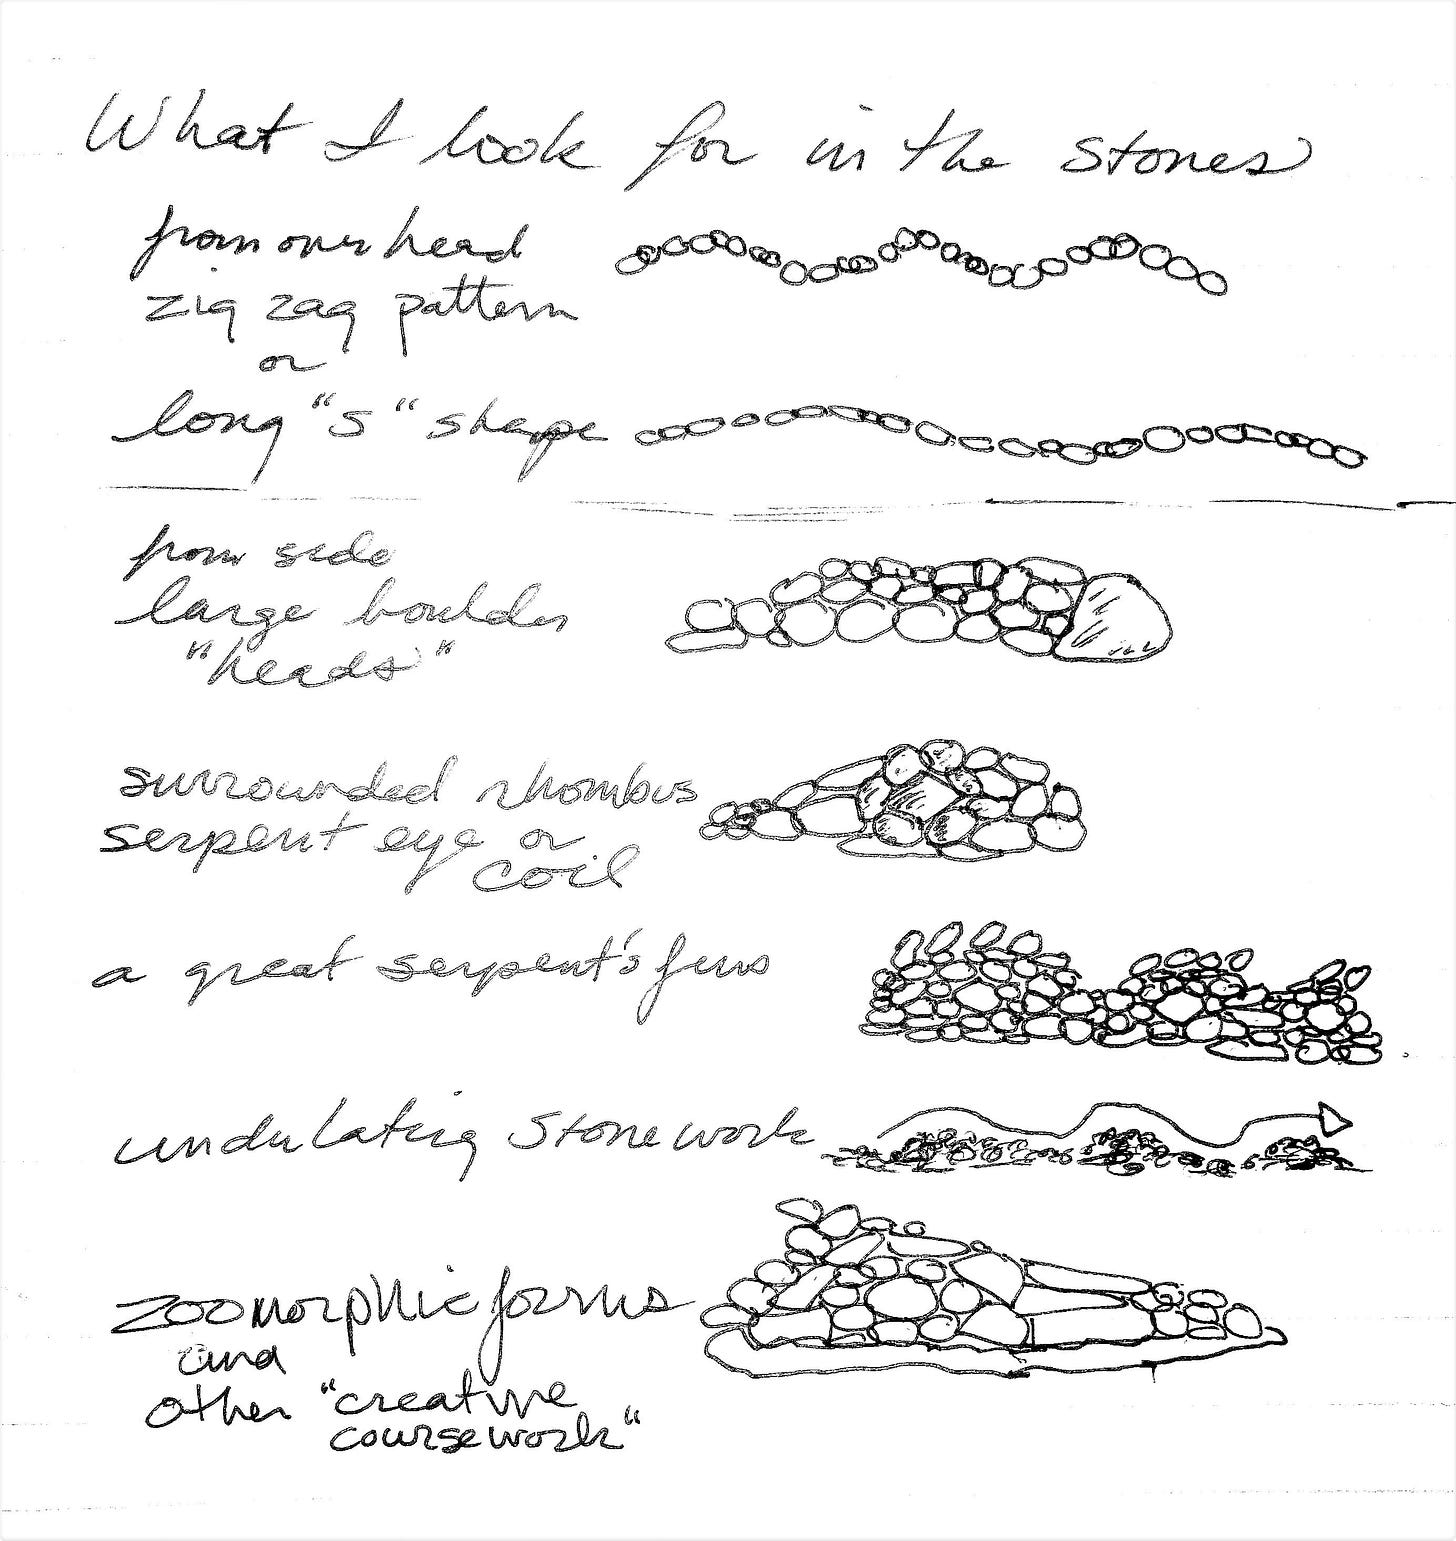 What I look for in the stones
from overhead
zig zag pattern
or
long "s" shape
from side
large boulder
"heads"
surrounded rhombus
serpent eye or
coil
a great serpent's fins
undulating stonework
zoomorphic forms
and
other "creative
coursework"